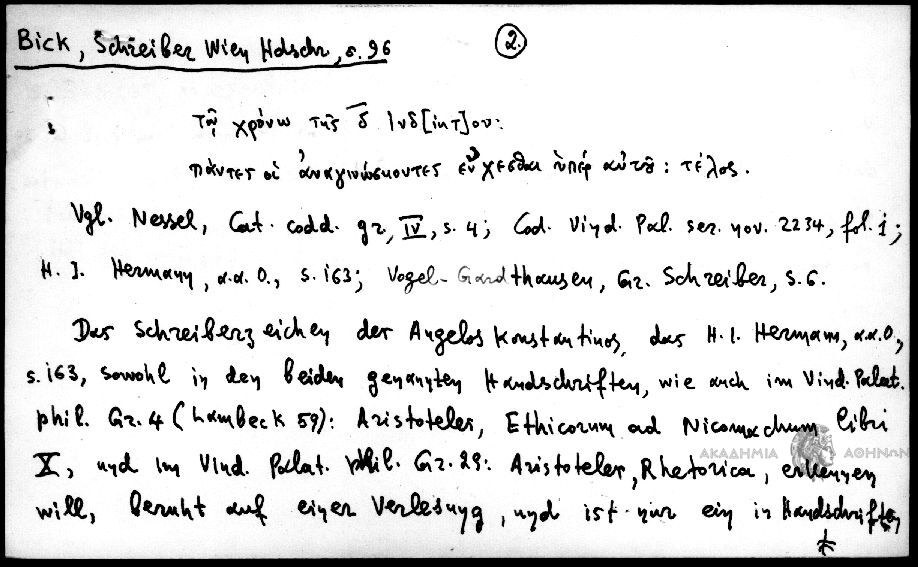 Bick, Schreiber Wien Hdschr, s. 96
2.
τῷ χρόνω τῆς δ̅ Ινδ[ικτ]ου:
πάντες οἱ ἀναγινώσκοντες εὔχεσθαι ὑπὲρ αὐτοῦ: τέλος.
Vgl. Nessel, Cat. codd. gr, IV, s. 4; Cod. Vind. Pal. ser. nov. 2234, fol. 1;
H. J. Hermann, a.a.O., s. 163; Vogel-Gardthausen, Gr. Schreiber, s. 6.
Das Schreiberzeichen der Angelos Konstantinos, das H. I. Hermann, a.a.O,
s. 163, sowohl in den beiden genannten Handschriften, wie auch im Vind. Palat.
phil. Gr. 4 (Lambeck 59): Aristoteles, Ethicorum ad Nicomachum libri
X, und im Vind. Palat. phil. Gr. 29: Aristoteles, Rhetorica, erkennen
will, beruht auf einer Verlesung, und ist nur ein in Handschriften
ΑΚΑΔΗΜΙΑ ΑΘΗΝΩΝ